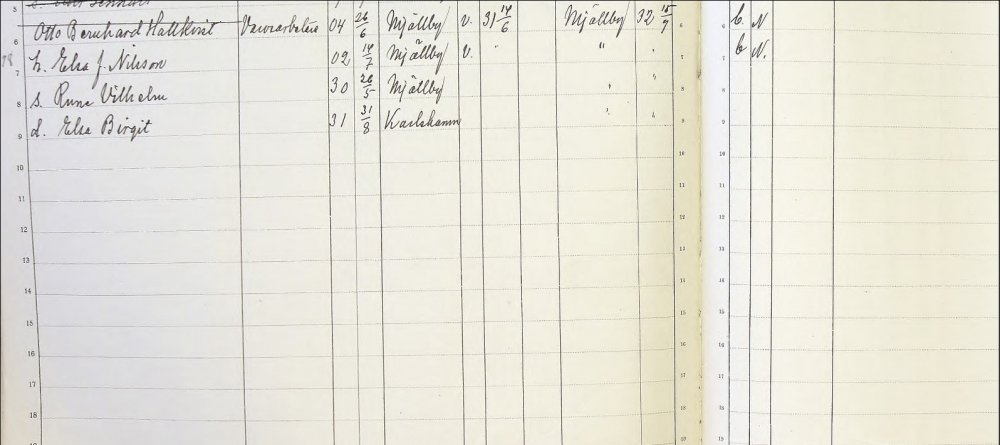 5
Otto Bernhard Hallkvist Varvsarbetare 04 26/6 Mjällby v. 31 14/6 Mjällby 32 15/7 6 b. N
6
h. Elsa J. Nilsson 02 14/7 Mjällby v. " " " 7 b N.
7
s. Rune Vilhelm 30 26/5 Mjällby " " 8
8
d. Elsa Birgit 31 31/8 Karlshamn " " 9
9
10 10
11 11
12 12
13 13
14 14
15 15
16 16
17 17
18 18